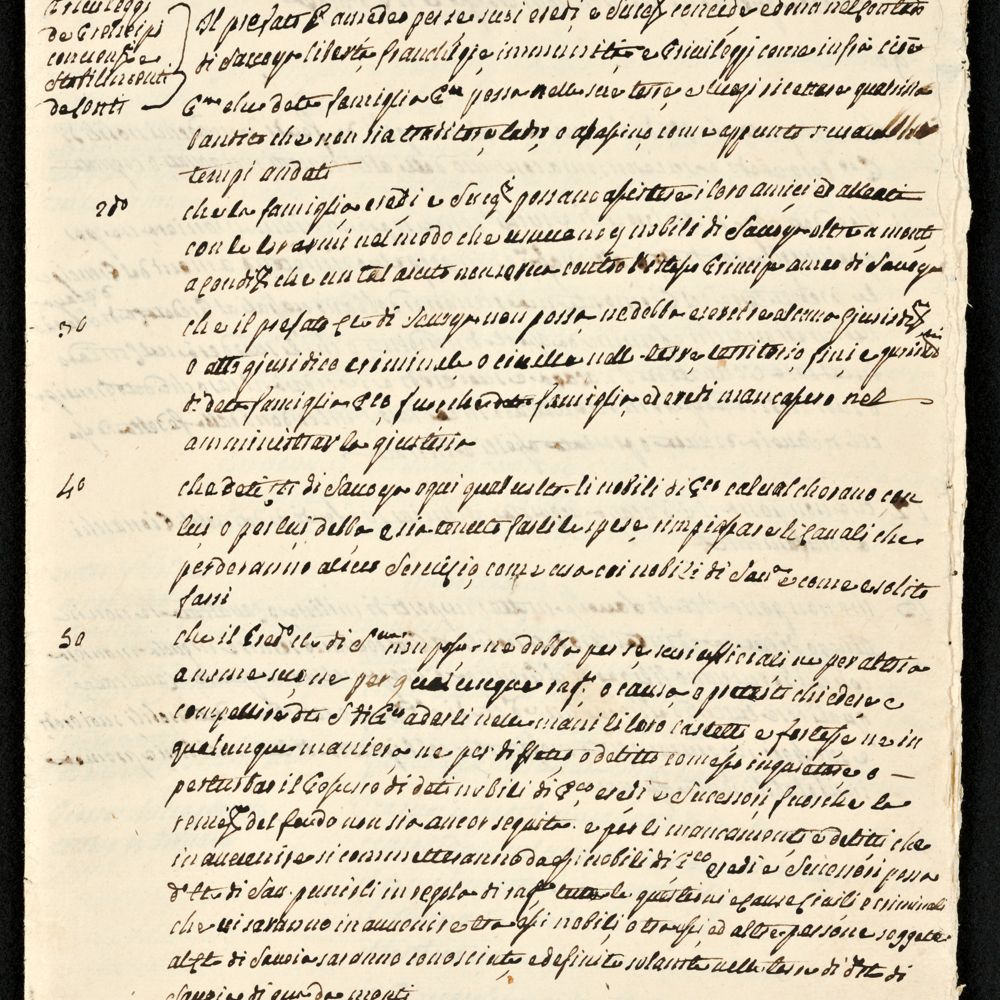 Privileggi
de Principi
concernti e
Stabillimenti
de Conti
Il prefato C. amedeo per se suoi eredi e Suces. concede e dona nel Contado
di Savoya libertà franchigie immunità e Privileggi come infra cioè
Pmo che detta famiglia possa nelle sue terre e luoghi ricettare qualsisia
bandito che non sia traditore, ladro, o assassino come appunto
tempi andati
2do che la famiglia eredi e Suces. possano assistere i loro amici ed alleati
con le loro armi nel modo che usavano nobili di Savoya oltre a monti
a condiz. che un tal aiuto non serva contro l'istesso Principe di Savoya
3o che il prefato Cte di Savoya non possa ne debba esercire alcuna giurisdiz.
o atto giuridico criminale o civille nelle terre territorio, fini e
di detta famiglia fuorche detta famiglia ed eredi mancassero nel
amministrar la giustitia
4o che detti Cti di Savoya ogni qual volta li nobili di cavalcherano con
lui o per lui debba e sia tenuto farli le spese rimpiazzare li Cavali che
perderanno al suo Servizio come usa coi nobili di Sava e come è solito
farsi
5o che il Cte di non possa ne debba per se suoi officiali ne per altra
per qualunque o causa o pretesti chiedere e
compellire a darli nelle mani li loro castelli e fortesse ne in
qualunque maniera ne per difetto o delitto comesso inquietare o
perturbar il Possesso di dati nobili di eredi e Sucessori fuorche la
del feudo non sia ancor seguita. e per li mancamenti e delitti che
in avvenire si commetteranno da essi nobili di eredi e Sucessori possa
di Sav. punirli in regola di tutte le questioni e cause Civili e criminali
che vi saranno in avvenire tra essi nobili, o tra essi ed altre persone soggette
al Cte di Savoia saranno conosciute e definite solamte nelle terre di di
Savoia di qua da monti